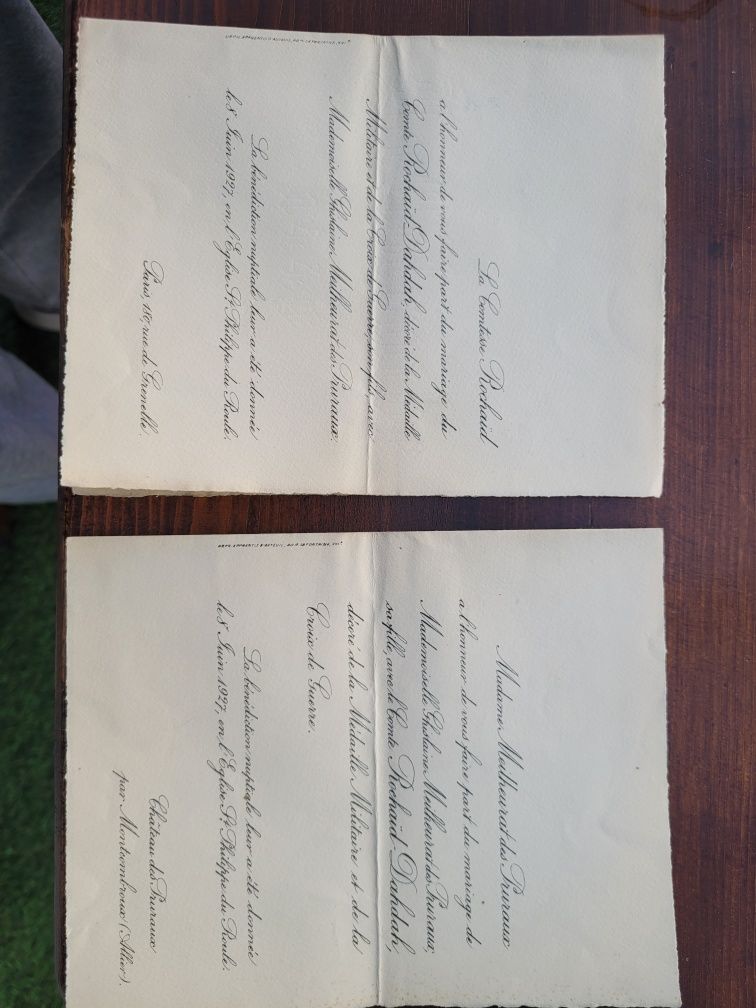 La Comtesse Rochaïd
a l'honneur de vous faire part du mariage du
Comte Rochaïd Dahdah, décoré de la Médaille
Militaire et de la Croix de Guerre, son fils, avec
Mademoiselle Ghislaine Meilheurat des Pruraux.
La bénédiction nuptiale leur a été donnée
le 8 Juin 1927, en l'Eglise St. Philippe du Roule.
Paris, 180, rue de Grenelle.
Madame Meilheurat des Pruraux
a l'honneur de vous faire part du mariage de
Mademoiselle Ghislaine Meilheurat des Pruraux,
sa fille, avec le Comte Rochaïd Dahdah,
décoré de la Médaille Militaire et de la
Croix de Guerre.
La bénédiction nuptiale leur a été donnée
le 8 Juin 1927, en l'Eglise St. Philippe du Roule.
Château des Pruraux
par Montcombroux (Allier).